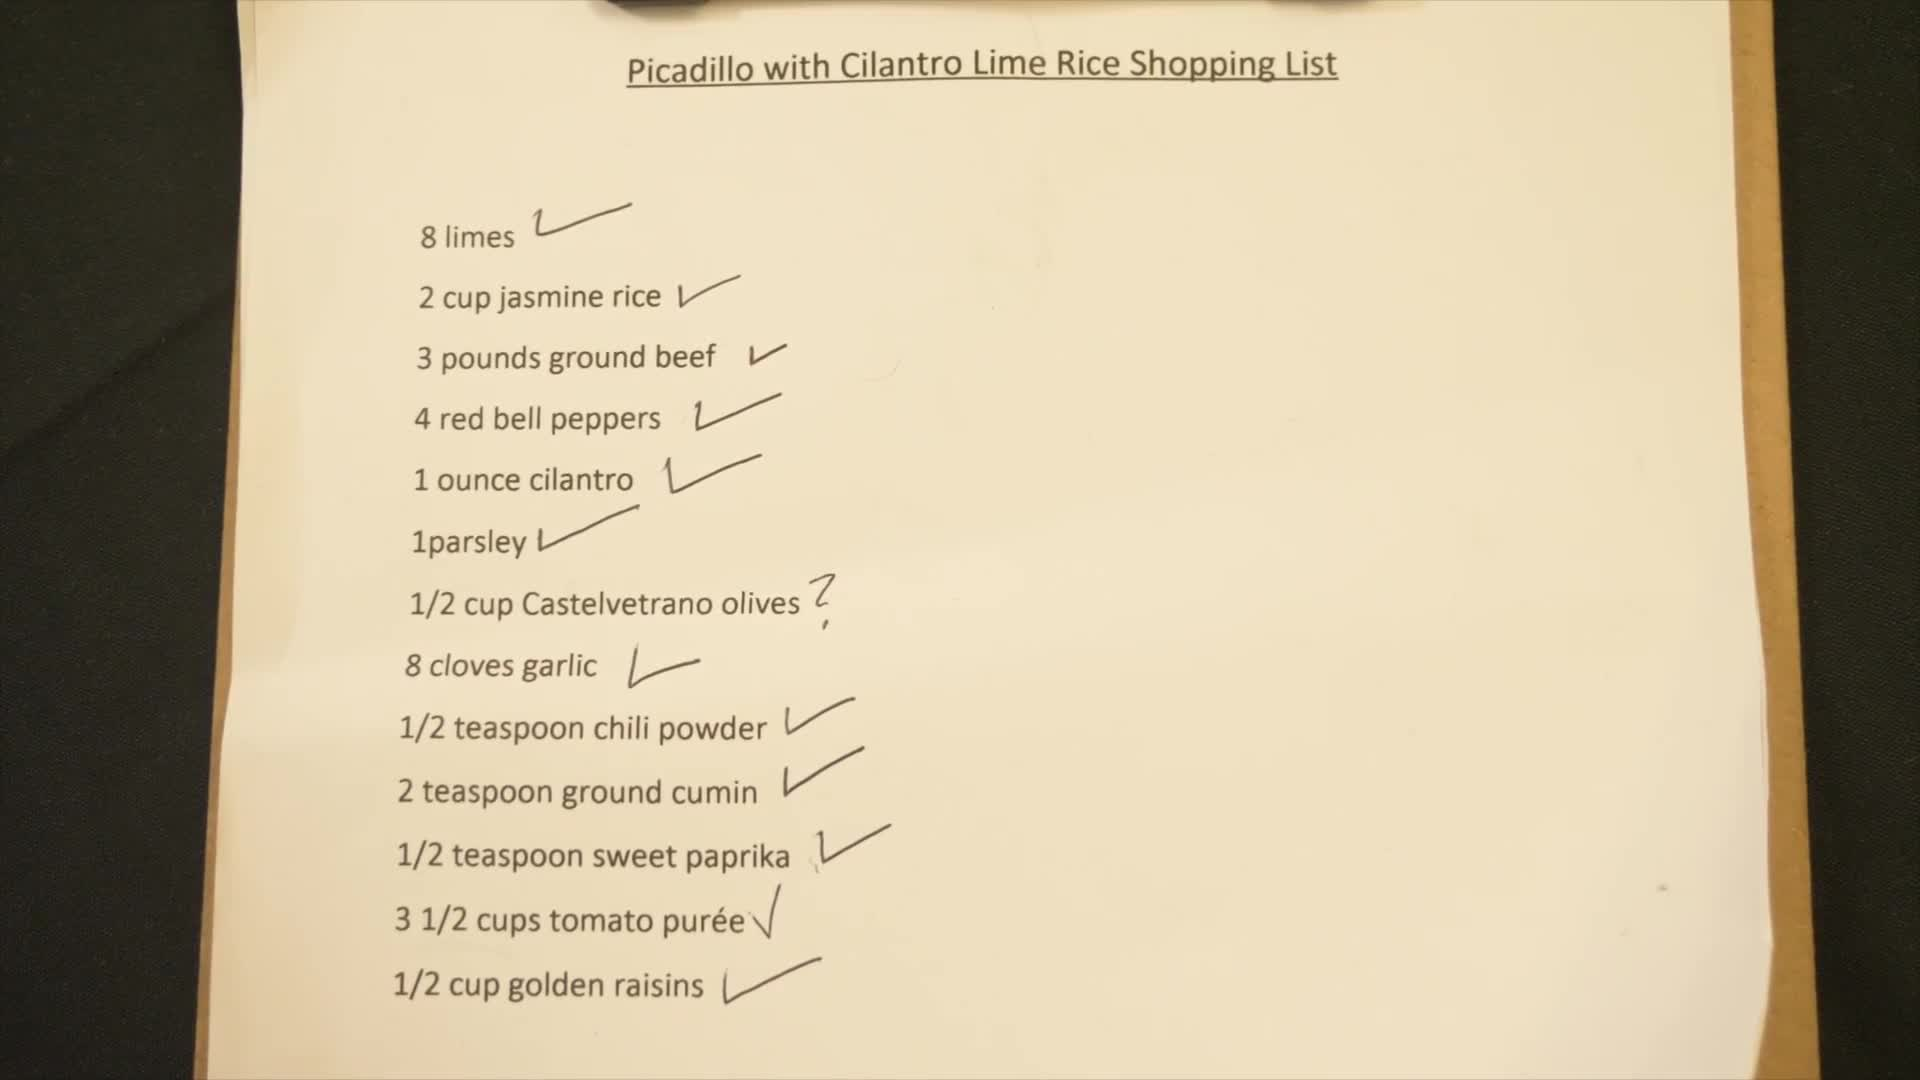 Picadillo with Cilantro Lime Rice Shopping List
8 limes ✓
2 cup jasmine rice ✓
3 pounds ground beef ✓
4 red bell peppers ✓
1 ounce cilantro ✓
1parsley ✓
1/2 cup Castelvetrano olives ?
8 cloves garlic ✓
1/2 teaspoon chili powder ✓
2 teaspoon ground cumin ✓
1/2 teaspoon sweet paprika ✓
3 1/2 cups tomato purée ✓
1/2 cup golden raisins ✓